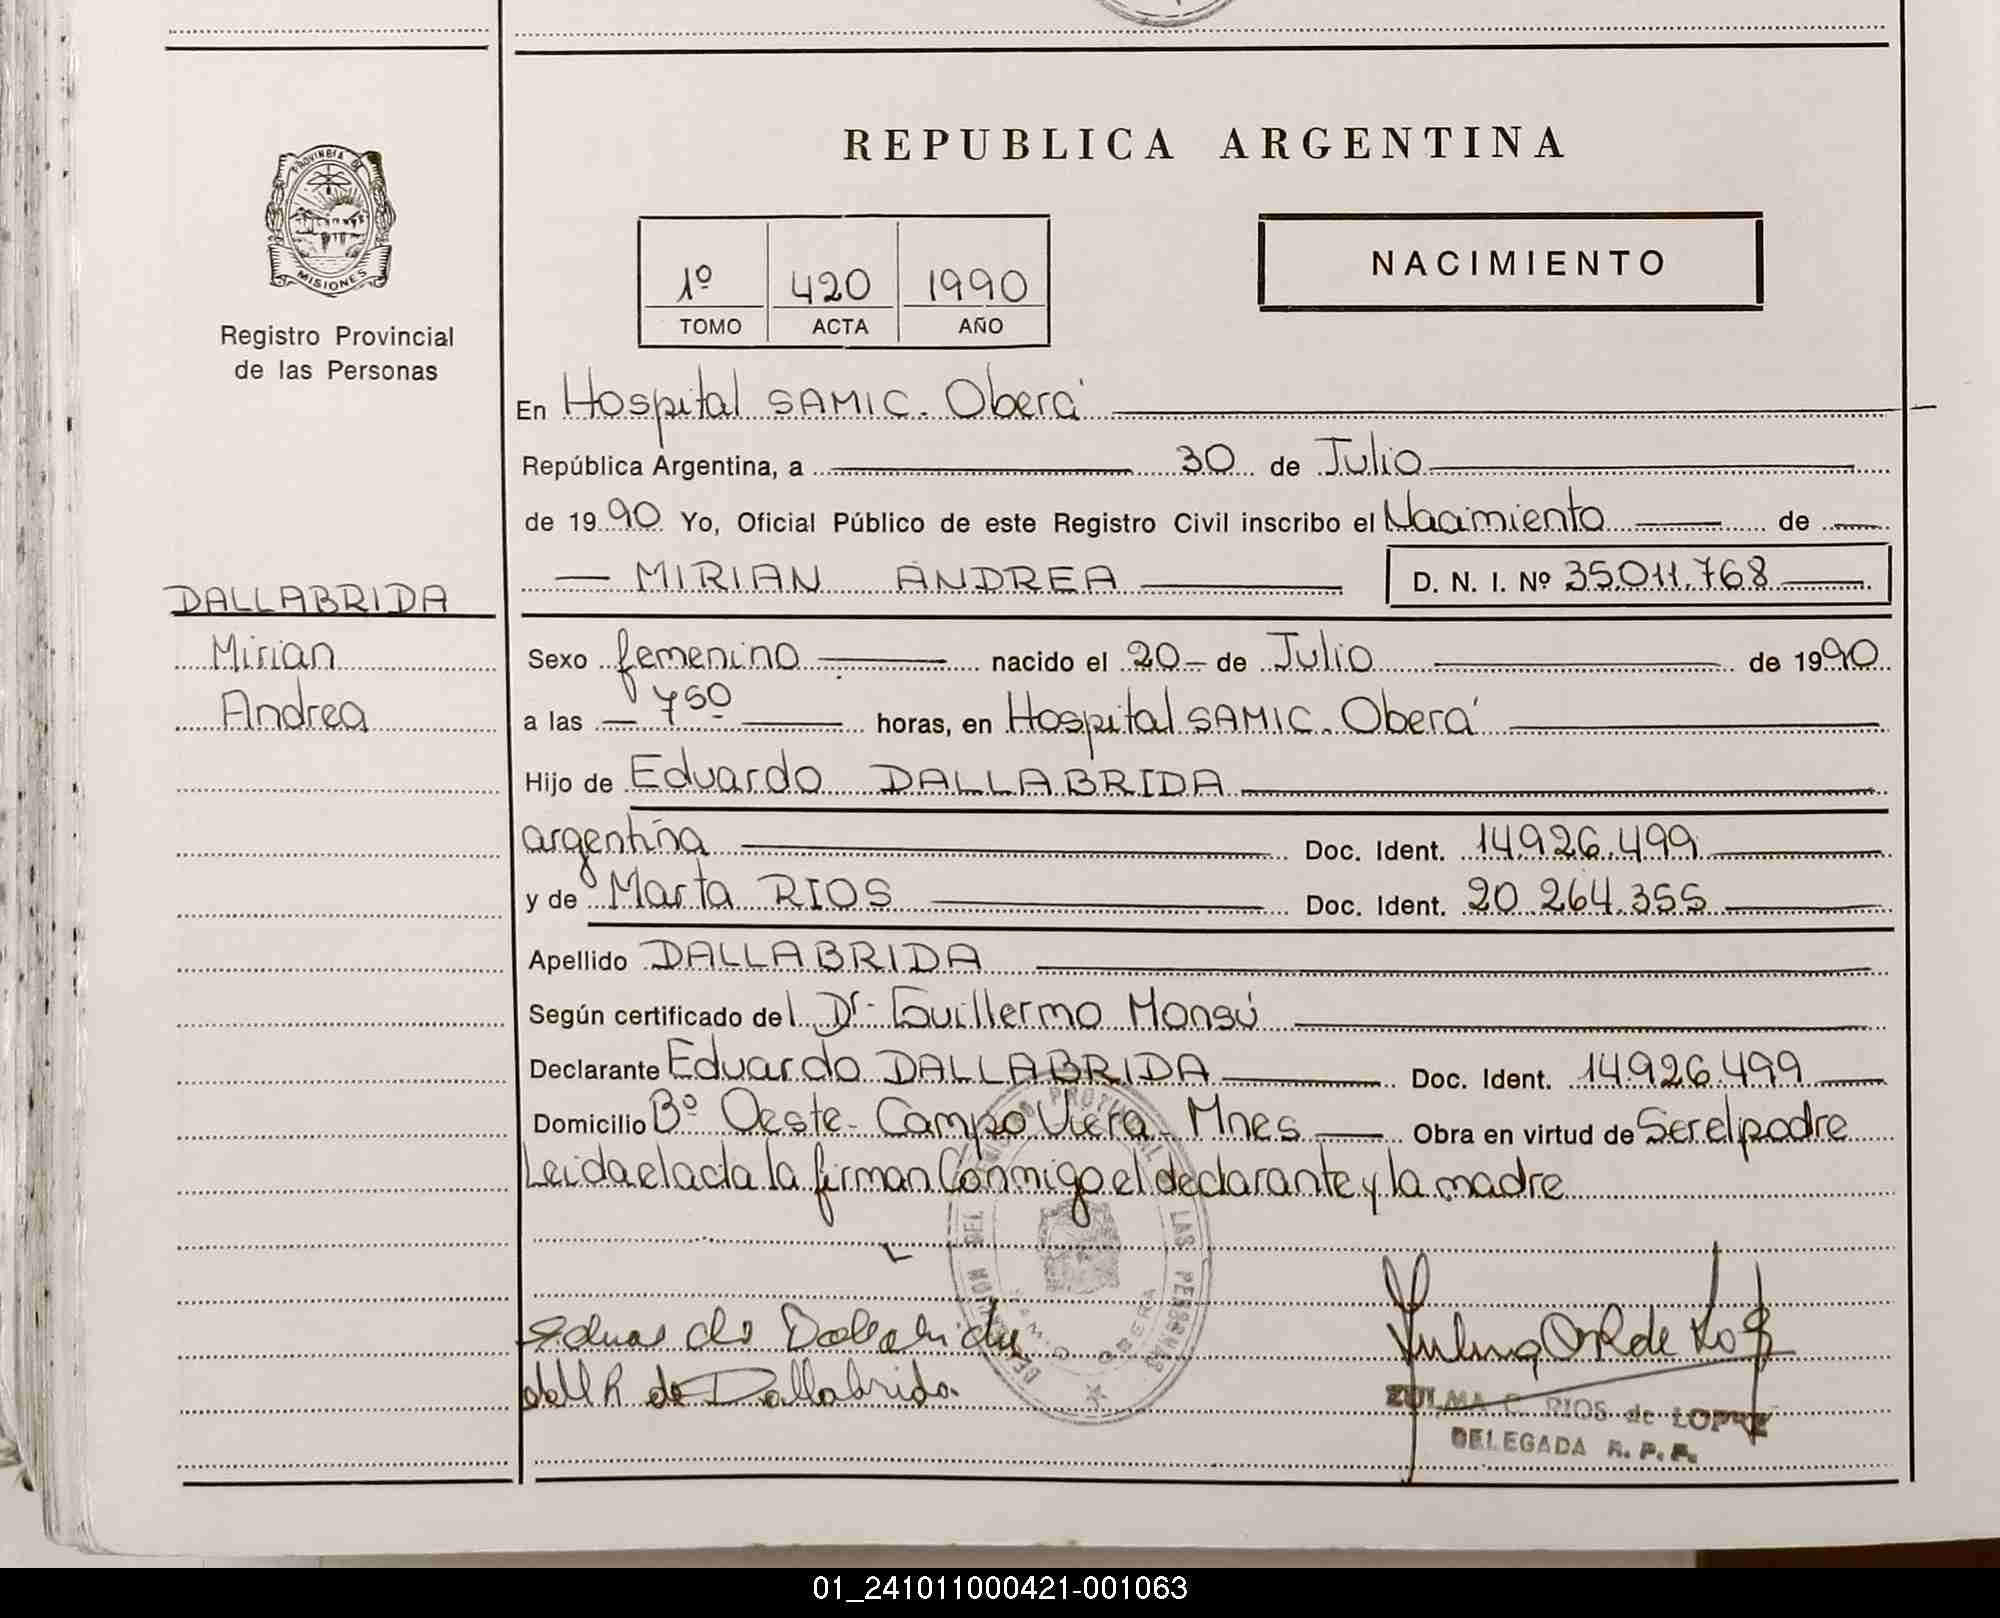 PROVINCIA DE
MISIONES
Registro Provincial
de las Personas
REPUBLICA ARGENTINA
1º 420 1990
TOMO ACTA AÑO
NACIMIENTO
En Hospital SAMIC. Oberá
República Argentina, a 30 de Julio
de 1990 Yo, Oficial Público de este Registro Civil inscribo el Nacimiento de
MIRIAN ANDREA D. N. I. Nº 35.011.768
DALLABRIDA
Mirian
Andrea
Sexo femenino nacido el 20 de Julio de 1990
a las 7 50 horas, en Hospital SAMIC. Oberá
Hijo de Eduardo DALLABRIDA
argentina Doc. Ident. 14.926.499
y de Marta RIOS Doc. Ident. 20.264.355
Apellido DALLABRIDA
Según certificado del Dr. Guillermo Monsú
Declarante Eduardo DALLABRIDA Doc. Ident. 14.926.499
Domicilio Bº Oeste - Campo Viera - Mnes Obra en virtud de Ser el padre
Leida el acta la firman Conmigo el declarante y la madre
LAS PERSONAS
OBERA
de Dallabrida
ZULMA C. RIOS de LOPEZ
DELEGADA R. P. P.
01_241011000421-001063